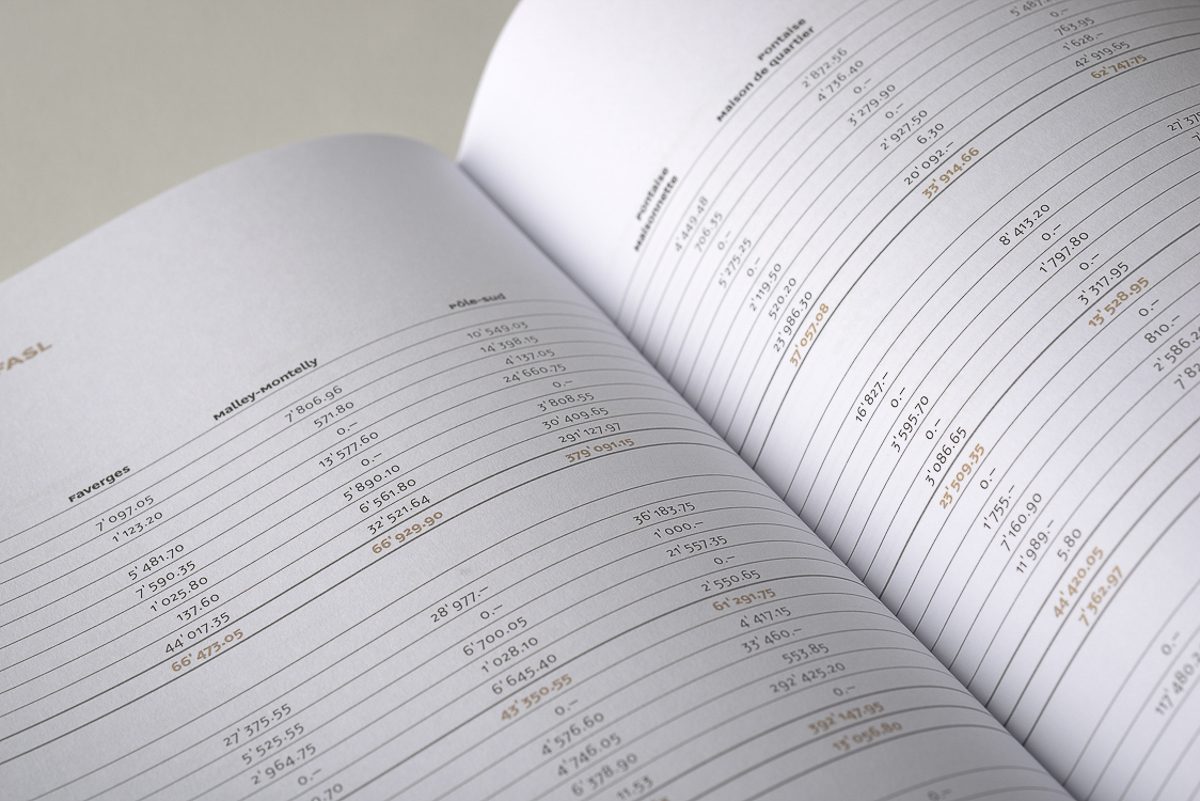 FASL
Faverges
7'097.05
1'123.20
5'481.70
7'590.35
1'025.80
137.60
44'017.35
66'473.05
27'375.55
5'525.55
2'964.75
0.–
Malley-Montelly
7'806.96
571.80
0.–
13'577.60
0.–
5'890.10
6'561.80
32'521.64
66'929.90
28'977.–
0.–
6'700.05
1'028.10
6'645.40
43'350.55
0.–
4'576.60
4'746.05
6'378.90
11.53
Pôle-sud
10'549.03
14'398.15
4'137.05
24'660.75
0.–
3'808.55
30'409.65
291'127.97
379'091.15
36'183.75
1'000.–
21'557.35
0.–
2'550.65
61'291.75
4'417.15
33'460.–
553.85
292'425.20
0.–
392'147.95
13'056.80
0.–
Pontaise
Maisonnette
4'449.48
706.35
0.–
5'275.25
0.–
2'119.50
520.20
23'986.30
37'057.08
16'827.–
0.–
3'595.70
0.–
3'086.65
23'509.35
0.–
1'755.–
7'160.90
11'989.–
5.80
44'420.05
7'362.97
Pontaise
Maison de quartier
2'872.56
4'736.40
0.–
3'279.90
0.–
2'927.50
6.30
20'092.–
33'914.66
8'413.20
0.–
1'797.80
0.–
3'317.95
13'528.95
0.–
810.–
0.–
0.–
763.95
1'628.–
42'919.65
62'747.75